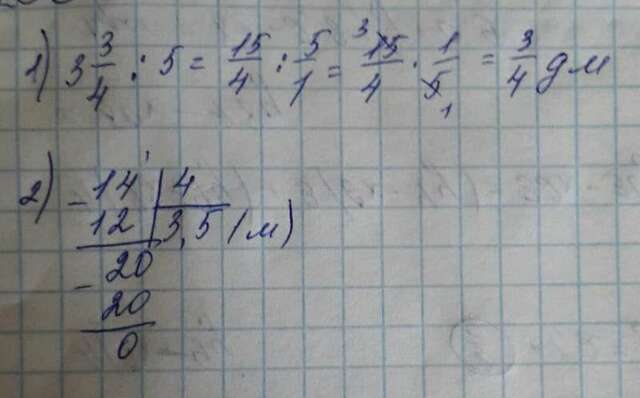 1) 3 3/4 : 5 = 15/4 : 5/1 = 3 15/4 · 1/5 1 = 3/4 дм
2) - 14 | 4
12 | 3,5 (м)
- 20
20
0